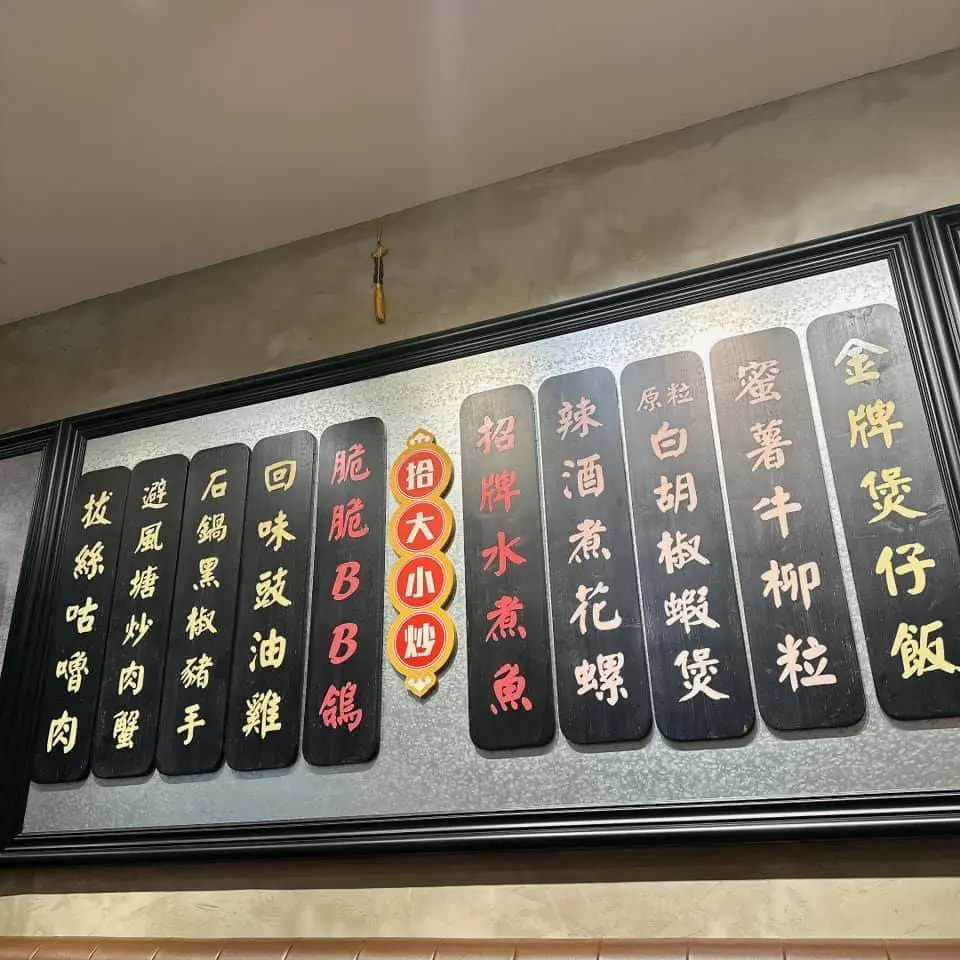 金牌煲仔飯
蜜薯牛柳粒
原粒白胡椒蝦煲
辣酒煮花螺
招牌水煮魚
拾大小炒
脆脆BB鴿
回味豉油雞
石鍋黑椒豬手
避風塘炒肉蟹
拔絲咕嚕肉